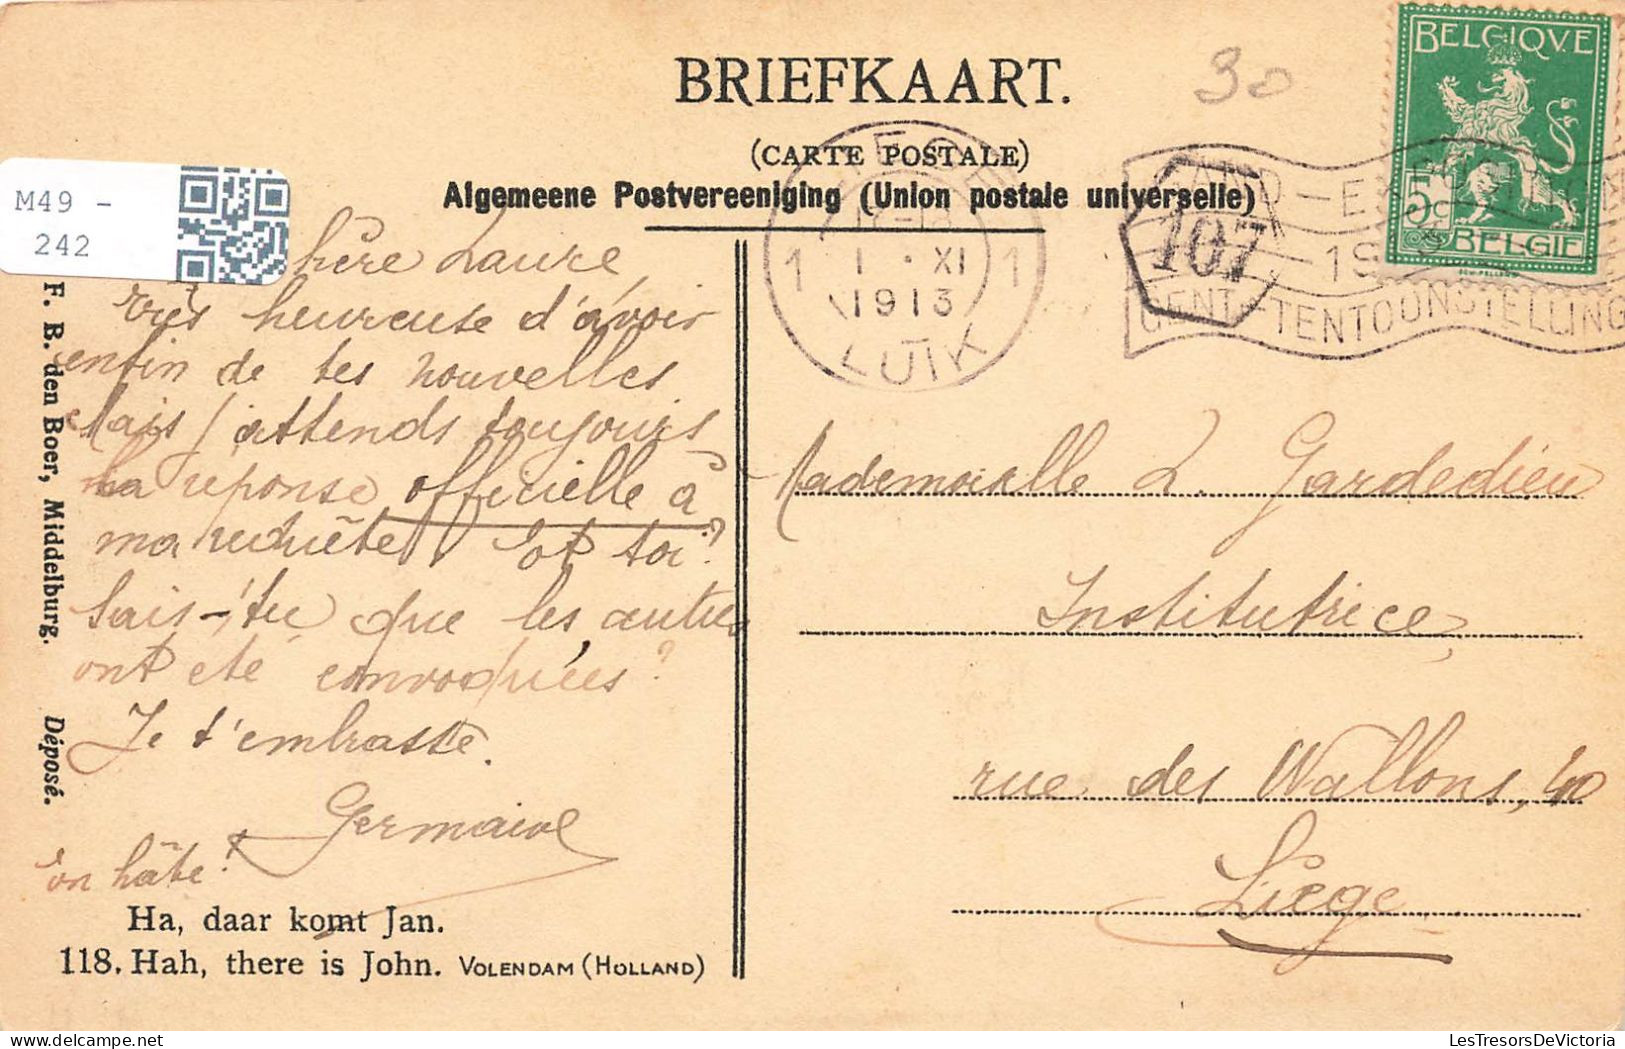 BRIEFKAART.
(CARTE POSTALE)
Algemeene Postvereeniging (Union postale universelle)
30
BELGIQVE
5c
BELGIË
LUIK
1 I · XI 1
1913
107
GENT-TENTOONSTELLING
M49 -
242
F. B. den Boer, Middelburg. Déposé.
hère Laure,
très heureuse d'avoir
enfin de tes nouvelles
Mais j'attends toujours
la réponse officielle à
ma requête. Et toi?
Sais-tu que les autres
ont été convoquées?
Je t'embrasse.
Germaine
En hâte!
Mademoiselle L. Gardedieu
Institutrice
rue des Wallons, 40
Liège
Ha, daar komt Jan.
118. Hah, there is John. VOLENDAM (HOLLAND)
LesTresorsDeVictoria